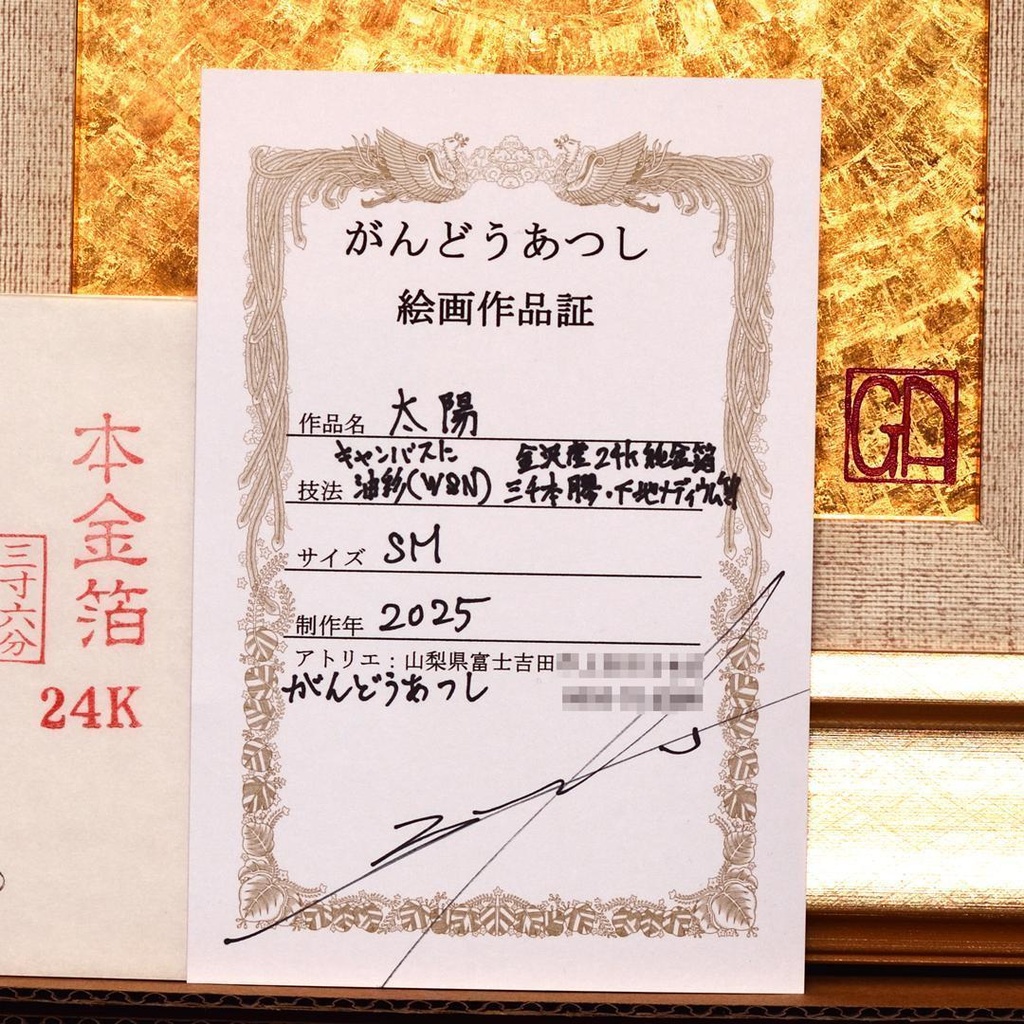 がんどうあつし
絵画作品証
作品名 太陽
キャンバスに 金沢産24k純金箔
技法 油彩(W&N) 三千本膠・下地メディウム
サイズ SM
制作年 2025
アトリエ:山梨県富士吉田
がんどうあつし
本金箔
三寸六分
24K
GA